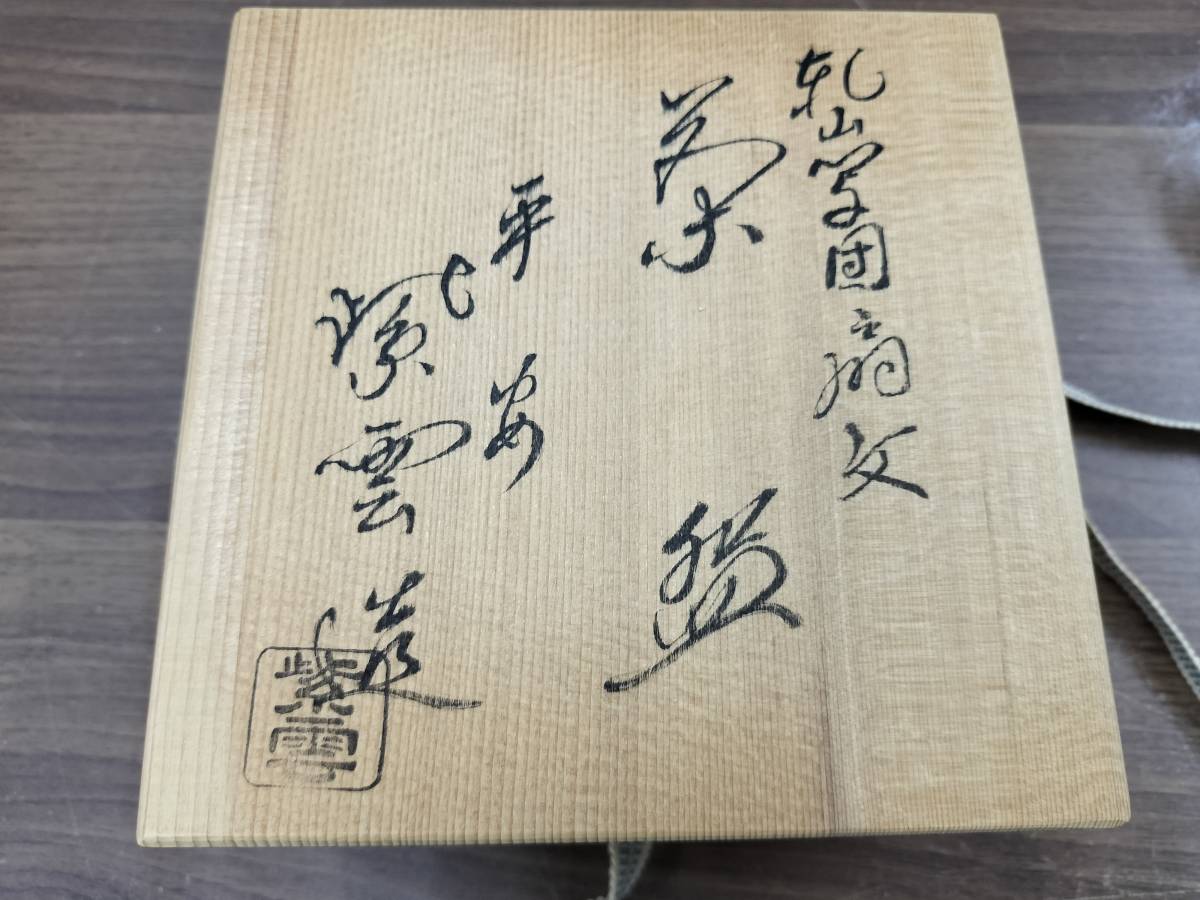 乾山写団扇文
菓盌
平安
紫雲造
紫雲